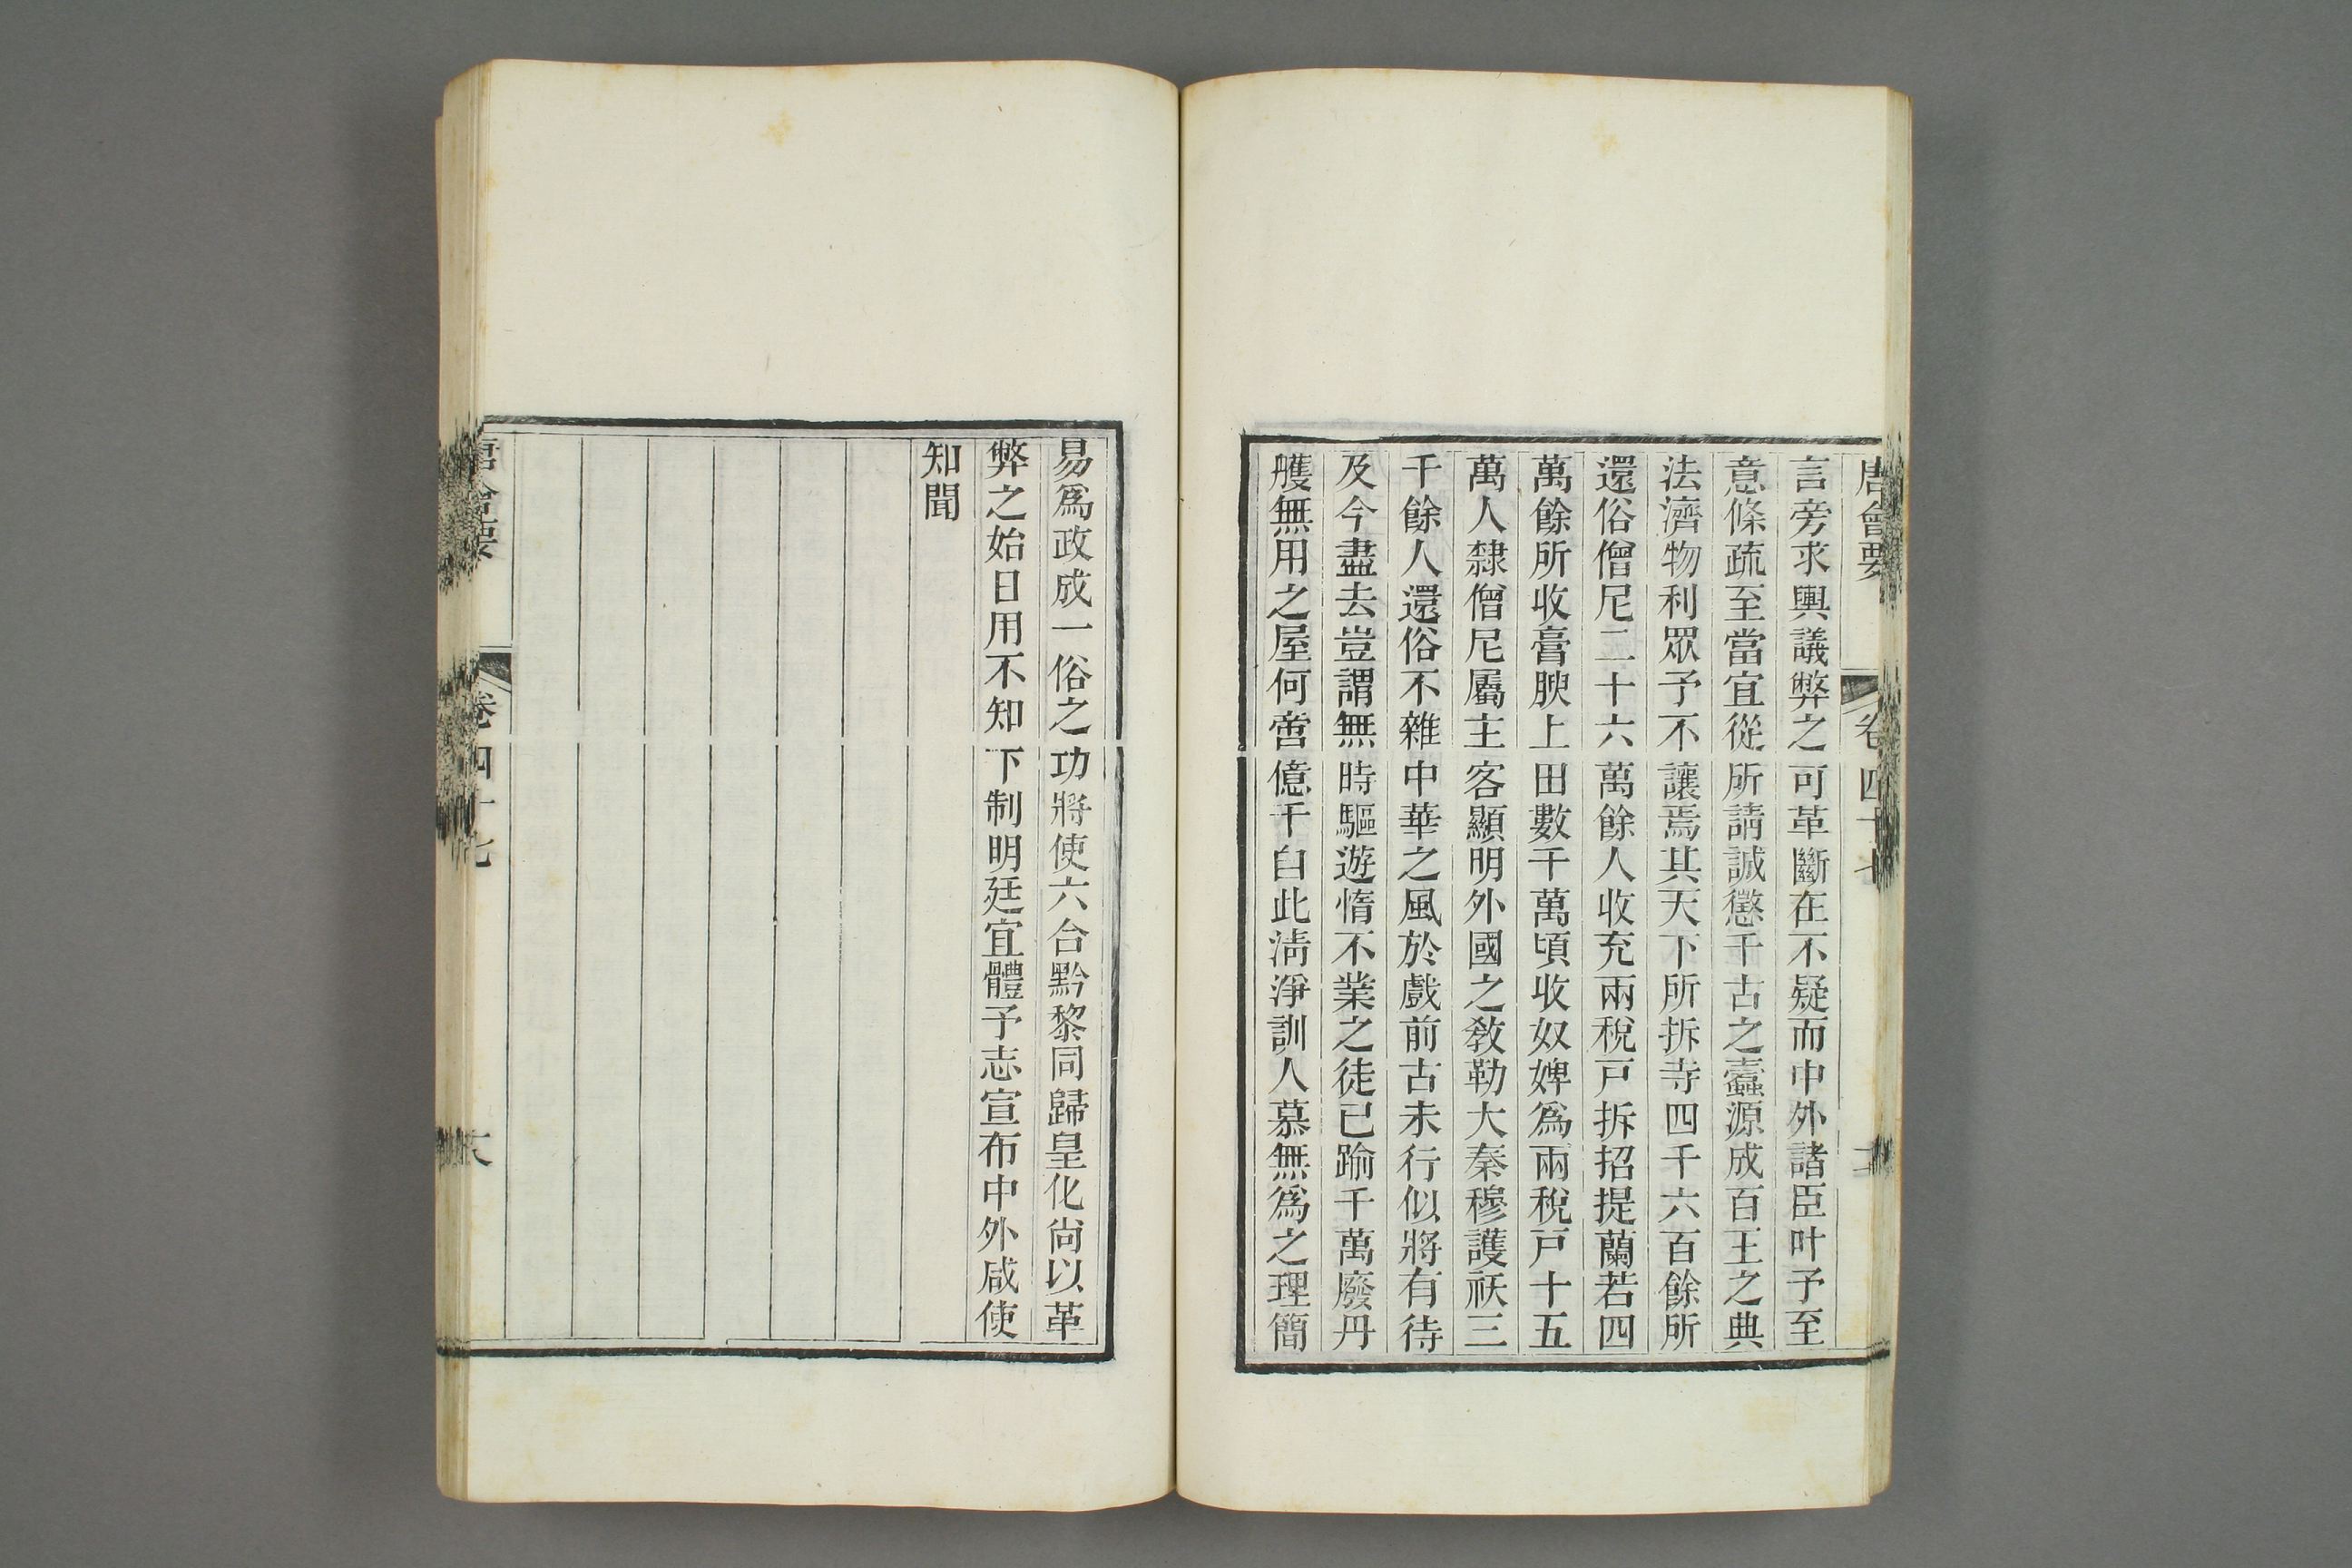 唐會要 卷四十七
言旁求輿議弊之可革斷在不疑而中外諸臣叶予至
意條疏至當宜從所請誠懲千古之蠹源成百王之典
法濟物利眾予不讓焉其天下所拆寺四千六百餘所
還俗僧尼二十六萬餘人收充兩稅戸拆招提蘭若四
萬餘所收膏腴上田數千萬頃收奴婢爲兩稅戸十五
萬人隸僧尼屬主客顯明外國之敎勒大秦穆護祆三
千餘人還俗不雜中華之風於戲前古未行似將有待
及今盡去豈謂無時驅遊惰不業之徒已踰千萬廢丹
雘無用之屋何啻億千自此淸淨訓人慕無爲之理簡
易爲政成一俗之功將使六合黔黎同歸皇化尙以革
弊之始日用不知下制明廷宜體予志宣布中外咸使
知聞
唐會要 卷四十七